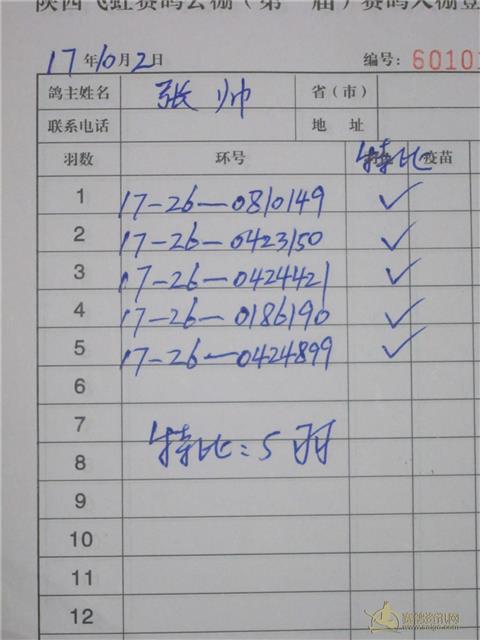 陕西飞虹赛鸽公棚(第一届)赛鸽入棚登
17年10月2日 编号: 60101
鸽主姓名 张帅 省(市)
联系电话 地址
羽数 环号 特比 疫苗
1 17-26-0810149 ✓
2 17-26-0423150 ✓
3 17-26-0424421 ✓
4 17-26-0186190 ✓
5 17-26-0424899 ✓
6
7
特比:5羽
8
9
10
11
12
赛鸽资讯网